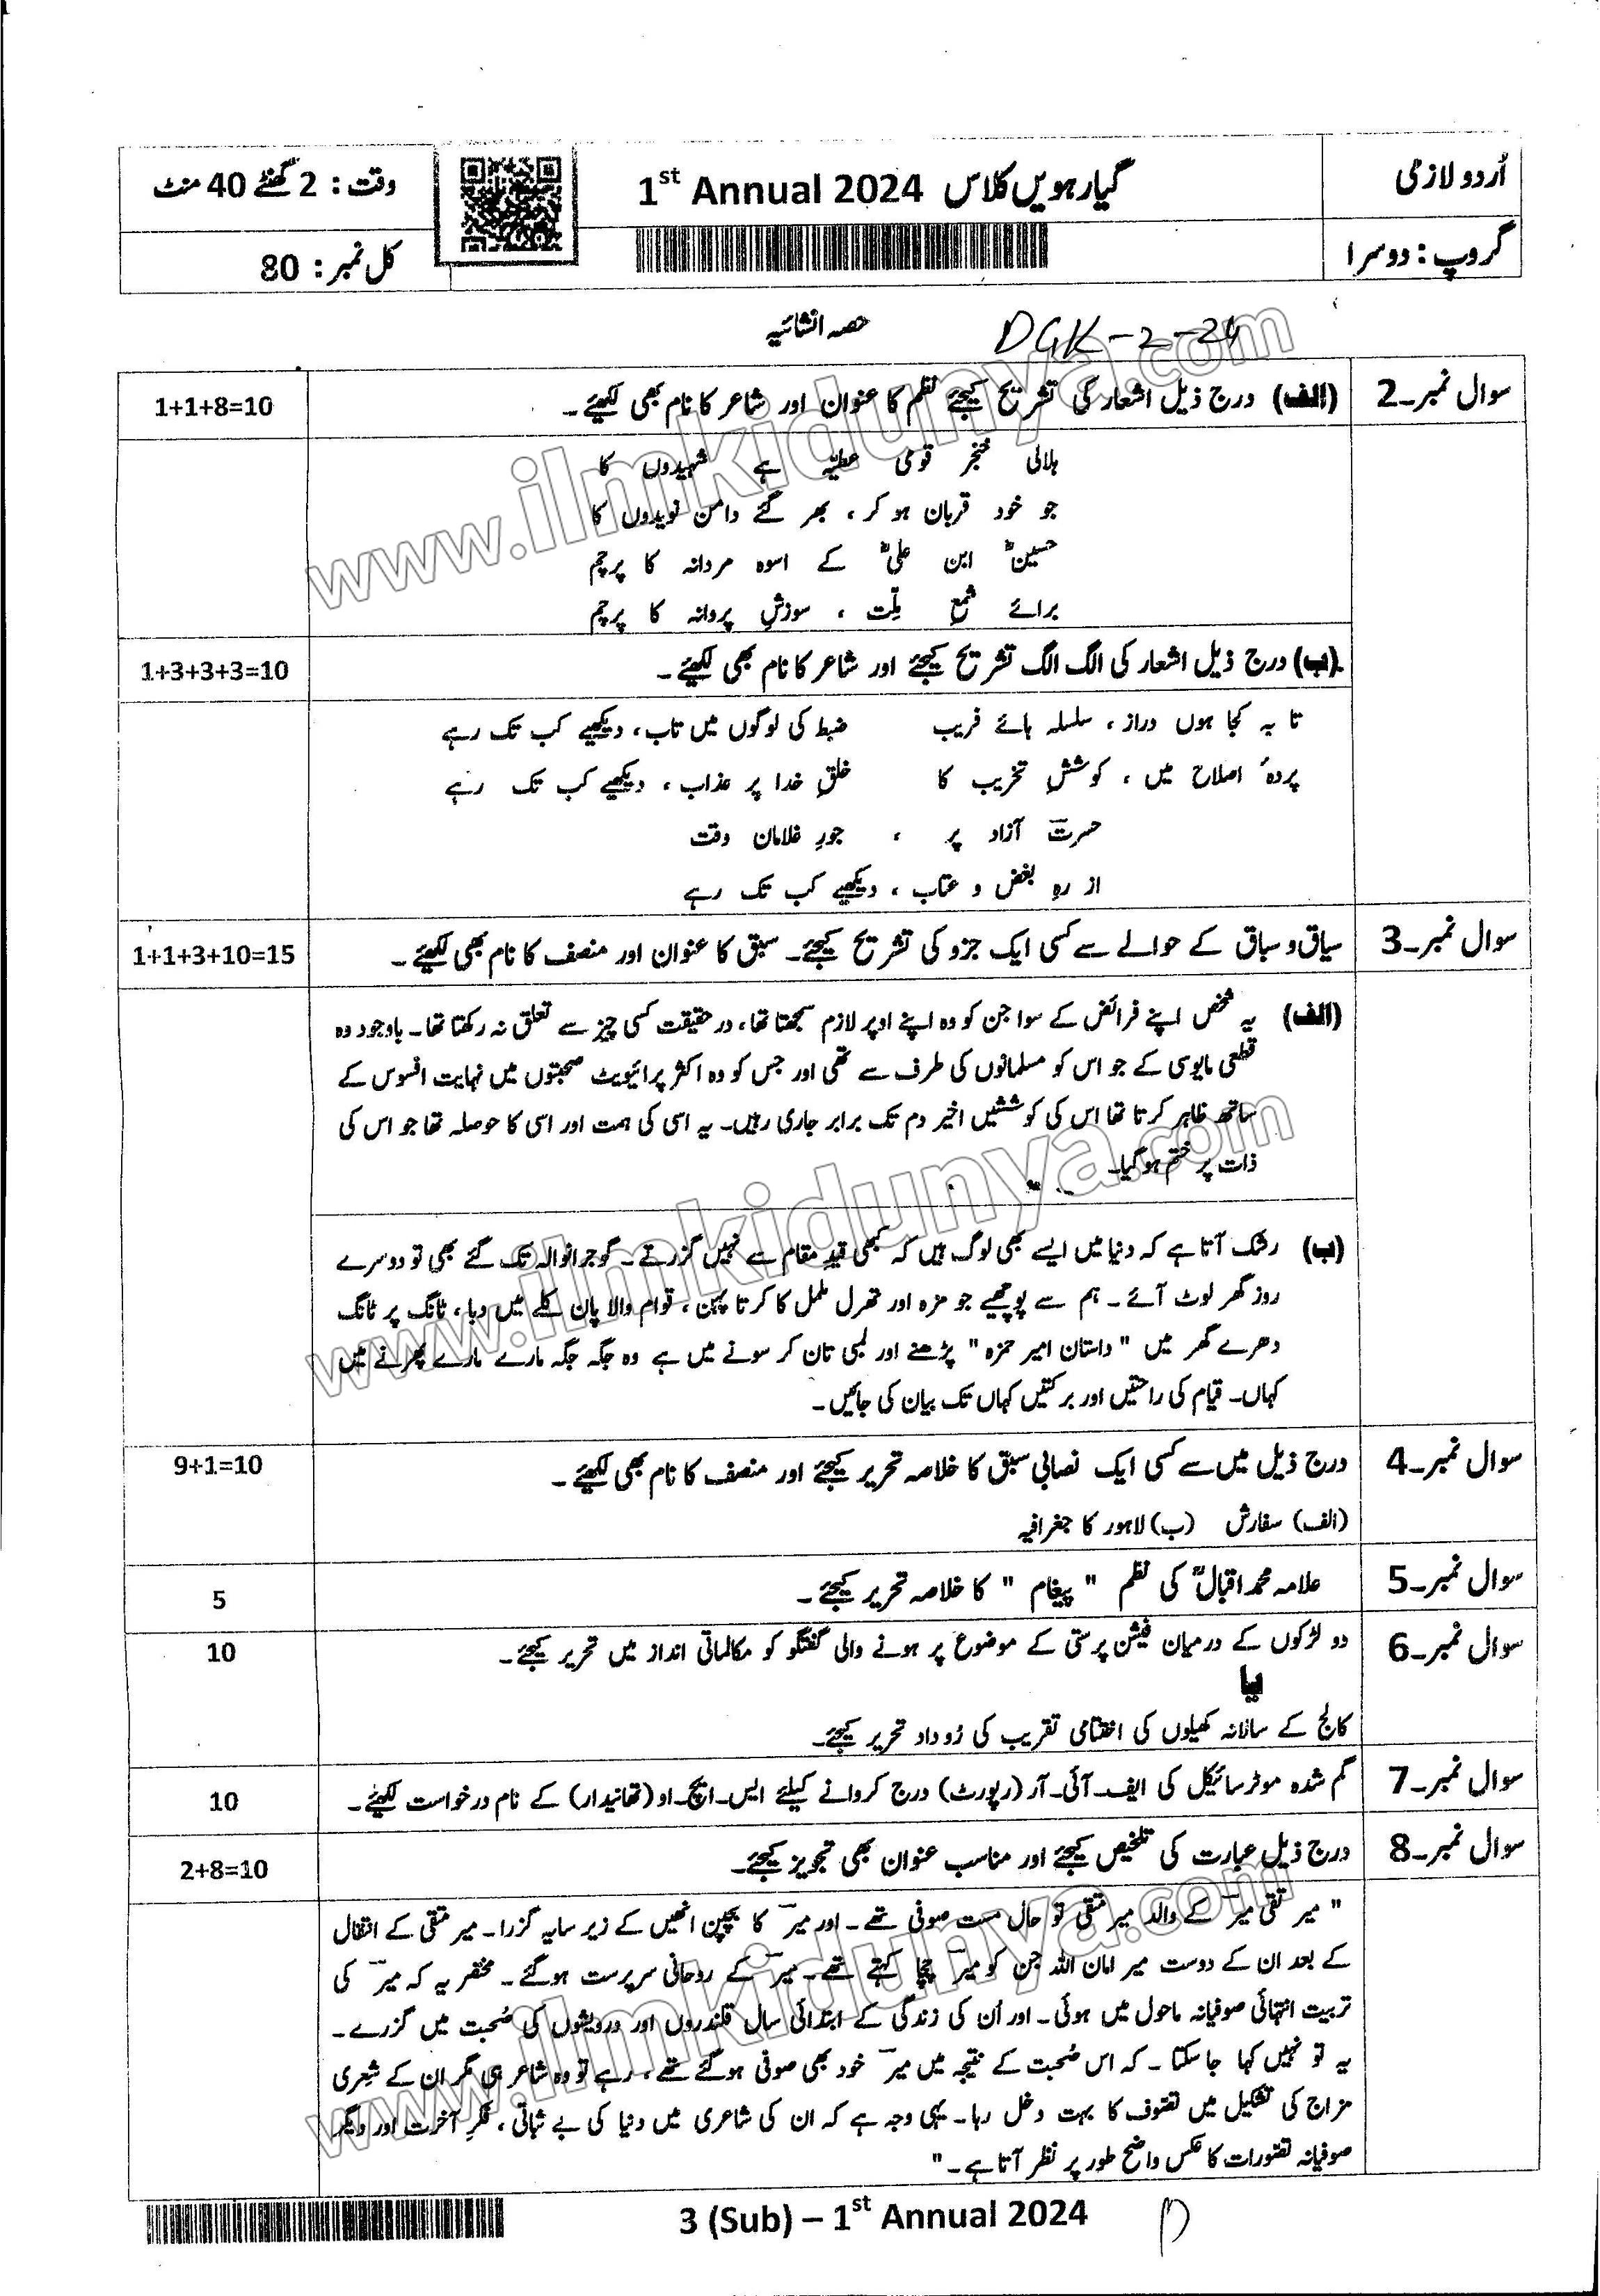 اُردو لازمی
گیارہویں کلاس 1st Annual 2024
وقت : 2 گھنٹے 40 منٹ
گروپ : دوسرا
کل نمبر : 80
DGK-2-24
حصہ انشائیہ
سوال نمبر۔2 (الف) درج ذیل اشعار کی تشریح کیجئے نظم کا عنوان اور شاعر کا نام بھی لکھئے ۔ 1+1+8=10
ہلالی خنجر قومی عطیّہ ہے شہیدوں کا
جو خود قربان ہو کر ، بھر گئے دامن نویدوں کا
حسینؓ ابن علیؓ کے اسوہ مردانہ کا پرچم
برائے شمع ملّت ، سوزشِ پروانہ کا پرچم
(ب) درج ذیل اشعار کی الگ الگ تشریح کیجئے اور شاعر کا نام بھی لکھئے ۔ 1+3+3+3=10
تا بہ کجا ہوں دراز ، سلسلہ ہائے فریب ضبط کی لوگوں میں تاب ، دیکھیے کب تک رہے
پردہٴ اصلاح میں ، کوششِ تخریب کا خلقِ خدا پر عذاب ، دیکھیے کب تک رہے
حسرتؔ آزاد پر ، جورِ غلامان وقت
از رہِ بغض و عتاب ، دیکھیے کب تک رہے
سوال نمبر۔3 سیاق و سباق کے حوالے سے کسی ایک جزو کی تشریح کیجئے۔ سبق کا عنوان اور منصف کا نام بھی لکھئے ۔ 1+1+3+10=15
(الف) یہ شخص اپنے فرائض کے سوا جن کو وہ اپنے اوپر لازم سمجھتا تھا، در حقیقت کسی چیز سے تعلق نہ رکھتا تھا۔ باوجود وہ
قطعی مایوسی کے جو اس کو مسلمانوں کی طرف سے تھی اور جس کو وہ اکثر پرائیویٹ صحبتوں میں نہایت افسوس کے
ساتھ ظاہر کرتا تھا اس کی کوششیں اخیر دم تک برابر جاری رہیں۔ یہ اسی کی ہمت اور اسی کا حوصلہ تھا جو اس کی
ذات پر ختم ہو گیا۔
(ب) رشک آتا ہے کہ دنیا میں ایسے بھی لوگ ہیں کہ کبھی قیدِ مقام سے نہیں گزرتے ۔ گوجرانوالہ تک گئے بھی تو دوسرے
روز گھر لوٹ آئے ۔ ہم سے پوچھیے جو مزہ اور تھرل ململ کا کرتا پہن ، قوام والا پان کلے میں دبا ، ٹانگ پر ٹانگ
دھرے گھر میں " داستان امیر حمزہ " پڑھنے اور لمبی تان کر سونے میں ہے وہ جگہ جگہ مارے مارے پھرنے میں
کہاں۔ قیام کی راحتیں اور برکتیں کہاں تک بیان کی جائیں۔
سوال نمبر۔4 درج ذیل میں سے کسی ایک نصابی سبق کا خلاصہ تحریر کیجئے اور منصف کا نام بھی لکھئے ۔ 9+1=10
(الف) سفارش (ب) لاہور کا جغرافیہ
سوال نمبر۔5 علامہ محمد اقبالؒ کی نظم " پیغام " کا خلاصہ تحریر کیجئے ۔ 5
سوال نمبر۔6 دو لڑکوں کے درمیان فیشن پرستی کے موضوع پر ہونے والی گفتگو کو مکالماتی انداز میں تحریر کیجئے ۔ 10
یا
کالج کے سالانہ کھیلوں کی اختتامی تقریب کی رُوداد تحریر کیجئے۔
سوال نمبر۔7 گم شدہ موٹر سائیکل کی ایف۔آئی۔آر (رپورٹ) درج کروانے کیلئے ایس۔ایچ۔او (تھانیدار) کے نام درخواست لکھئے۔ 10
سوال نمبر۔8 درج ذیل عبارت کی تلخیص کیجئے اور مناسب عنوان بھی تجویز کیجئے۔ 2+8=10
" میر تقی میرؔ کے والد میر متقی تو حال مست صوفی تھے ۔ اور میرؔ کا بچپن انھیں کے زیر سایہ گزرا۔ میر متقی کے انتقال
کے بعد ان کے دوست میر امان اللہ جن کو میرؔ چچا کہتے تھے۔ میرؔ کے روحانی سرپرست ہو گئے ۔ مختصر یہ کہ میرؔ کی
تربیت انتہائی صوفیانہ ماحول میں ہوئی ۔ اور اُن کی زندگی کے ابتدائی سال قلندروں اور درویشوں کی صُحبت میں گزرے ۔
یہ تو نہیں کہا جا سکتا ۔ کہ اس صُحبت کے نتیجہ میں میرؔ خود بھی صوفی ہو گئے تھے ، رہے تو وہ شاعر ہی مگر ان کے شِعری
مزاج کی تشکیل میں تصّوف کا بہت دخل رہا۔ یہی وجہ ہے کہ ان کی شاعری میں دنیا کی بے ثباتی ، فکرِ آخرت اور دیگر
صوفیانہ تصّورات کا عکس واضح طور پر نظر آتا ہے ۔ "
3 (Sub) – 1st Annual 2024
D
www.ilmkidunya.com
www.ilmkidunya.com
www.ilmkidunya.com